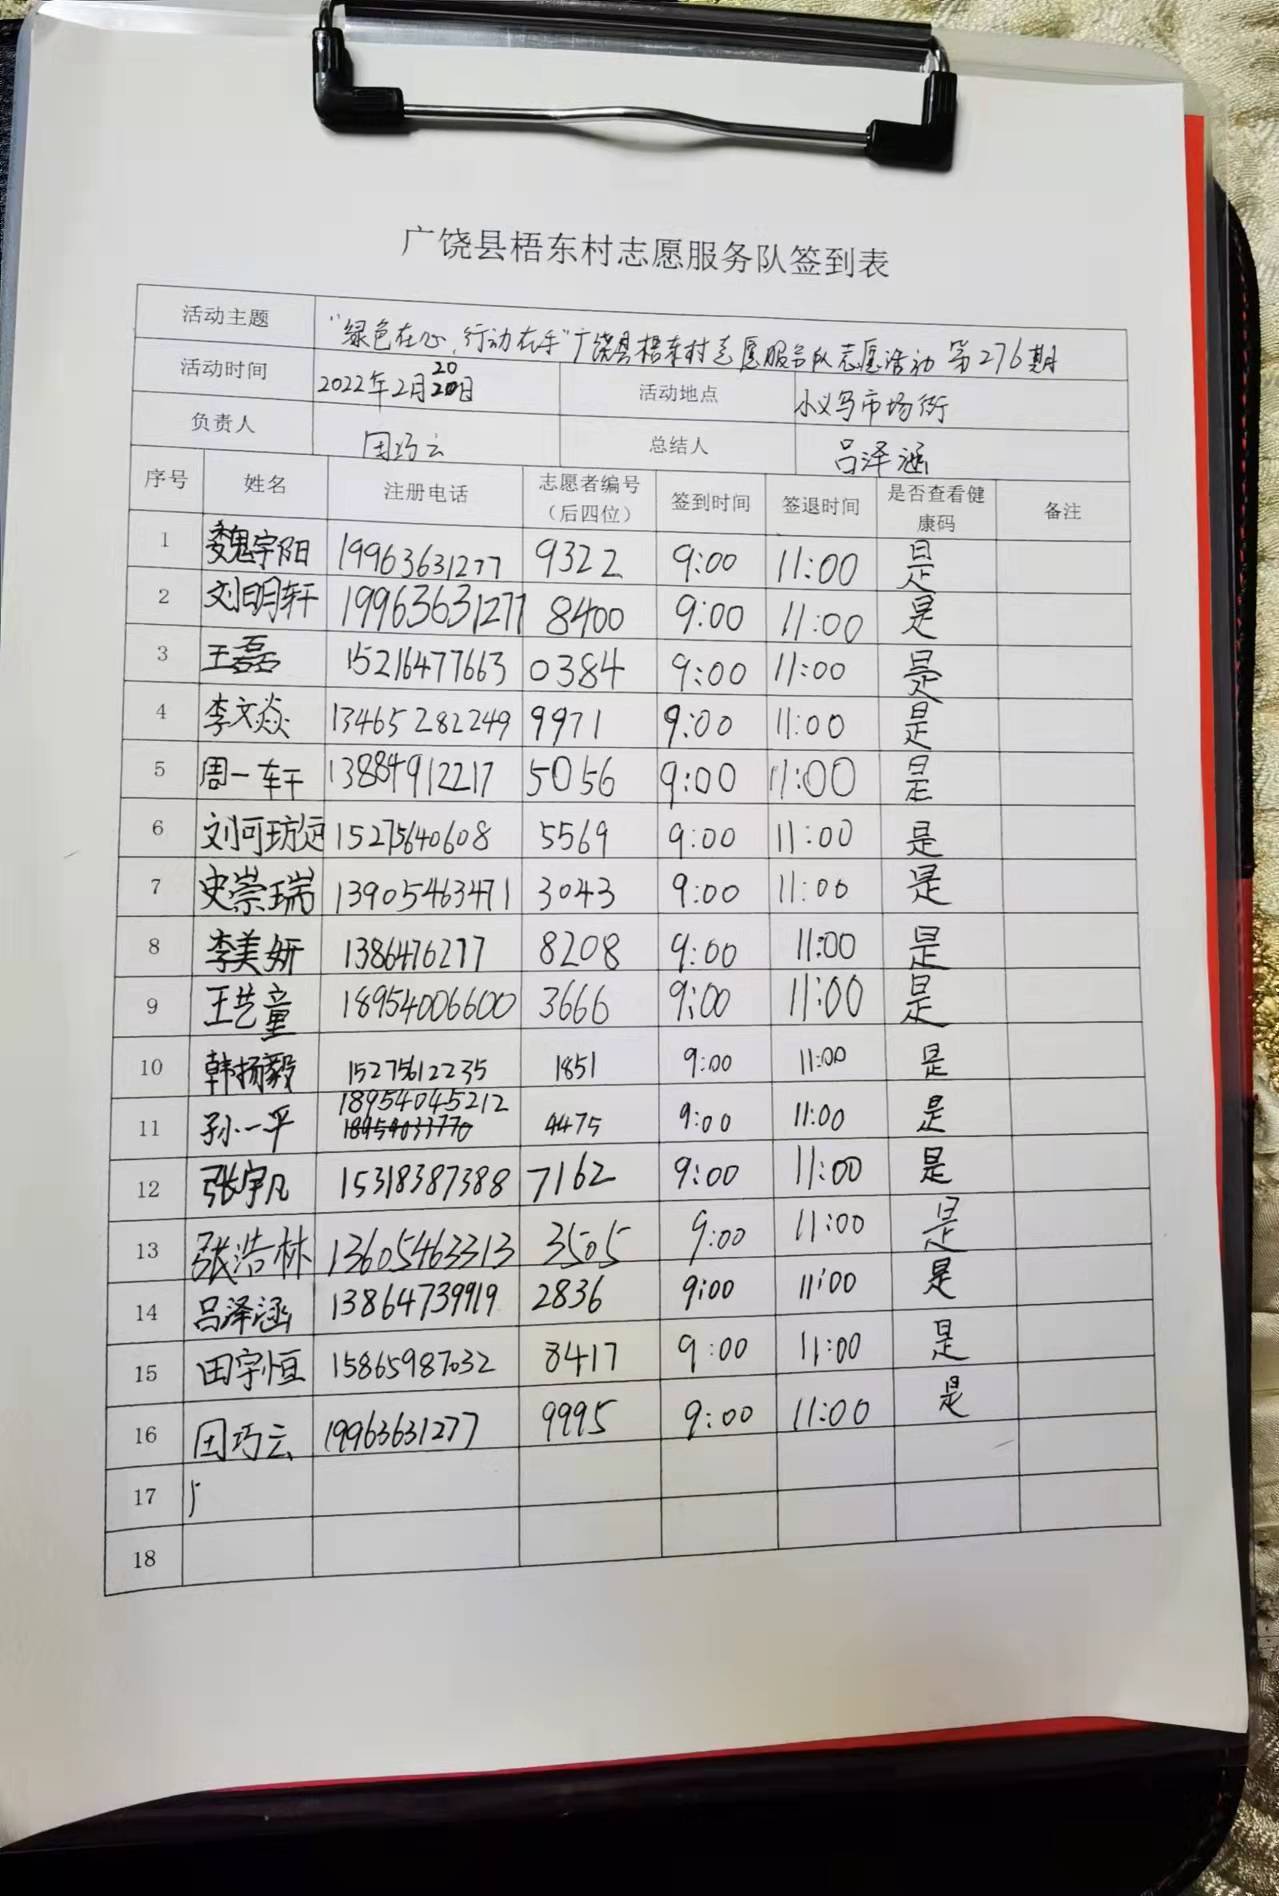 广饶县梧东村志愿服务队签到表
活动主题 “绿色在心,行动在手”广饶县梧东村志愿服务队志愿活动 第276期
活动时间 2022年2月20日 活动地点 小义乌市场街
负责人 田巧云 总结人 吕泽涵
序号 姓名 注册电话 志愿者编号(后四位) 签到时间 签退时间 是否查看健康码 备注
1 魏宇阳 19963631277 9322 9:00 11:00 是
2 刘明轩 19963631277 8400 9:00 11:00 是
3 王磊 15216477663 0384 9:00 11:00 是
4 李文焱 13465282249 9971 9:00 11:00 是
5 周一轩 13884912217 5056 9:00 11:00 是
6 刘可 15275640608 5569 9:00 11:00 是
7 史崇瑞 13905463471 3043 9:00 11:00 是
8 李美妍 1386476277 8208 9:00 11:00 是
9 王艺童 18954006600 3666 9:00 11:00 是
10 韩扬毅 15275612235 1851 9:00 11:00 是
11 孙一平 18954045212 4475 9:00 11:00 是
12 张宇凡 15318387388 7162 9:00 11:00 是
13 张浩林 13605463313 3505 9:00 11:00 是
14 吕泽涵 13864739919 2836 9:00 11:00 是
15 田宇恒 15865987032 8417 9:00 11:00 是
16 田巧云 19963631277 9995 9:00 11:00 是
17
18